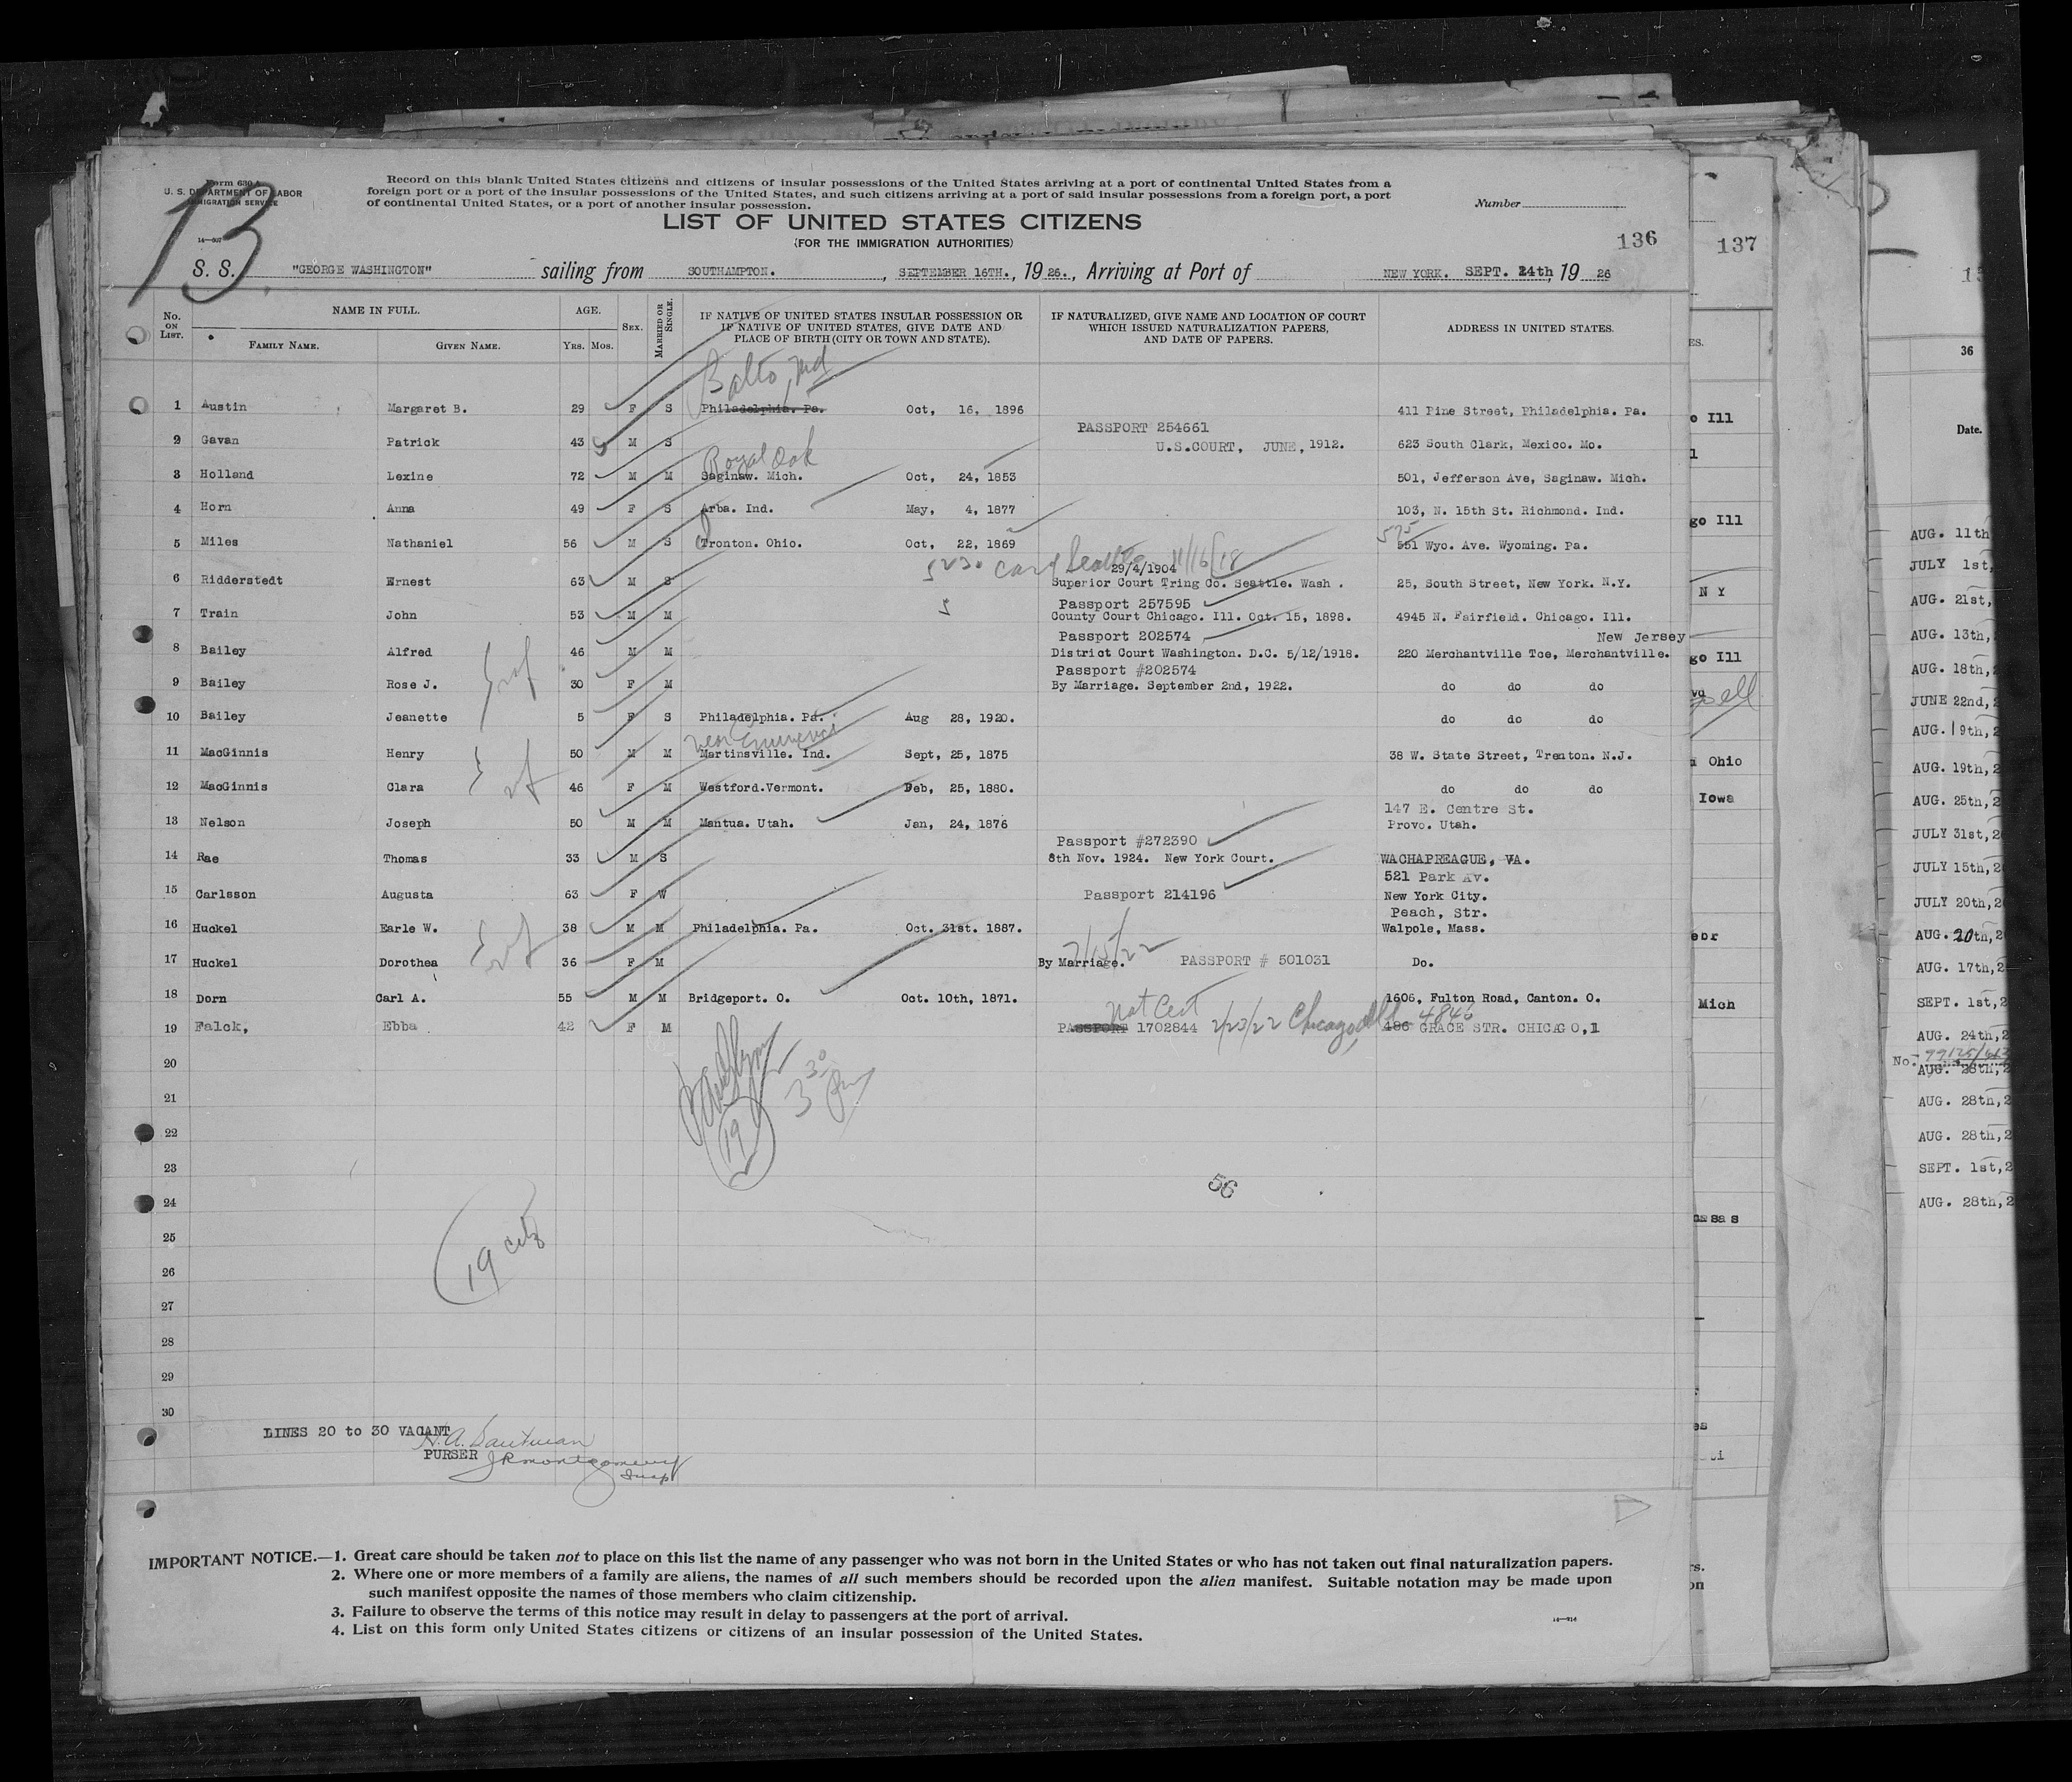 Form 630 A
U. S. DEPARTMENT OF LABOR
IMMIGRATION SERVICE
13
Record on this blank United States citizens and citizens of insular possessions of the United States arriving at a port of continental United States from a
foreign port or a port of the insular possessions of the United States, and such citizens arriving at a port of said insular possessions from a foreign port, a port
of continental United States, or a port of another insular possession.
Number
LIST OF UNITED STATES CITIZENS
(FOR THE IMMIGRATION AUTHORITIES)
136 137
S. S. "GEORGE WASHINGTON" sailing from SOUTHAMPTON. , SEPTEMBER 16TH., 19 26., Arriving at Port of NEW YORK. SEPT. 24th, 19 26
No. ON LIST. NAME IN FULL. FAMILY NAME. GIVEN NAME. AGE. YRS. MOS. SEX. MARRIED OR SINGLE. IF NATIVE OF UNITED STATES INSULAR POSSESSION OR IF NATIVE OF UNITED STATES, GIVE DATE AND PLACE OF BIRTH (CITY OR TOWN AND STATE). IF NATURALIZED, GIVE NAME AND LOCATION OF COURT WHICH ISSUED NATURALIZATION PAPERS, AND DATE OF PAPERS. ADDRESS IN UNITED STATES.
Balto, Md
1 Austin Margaret B. 29 F S Philadelphia. Pa. Oct, 16, 1896 411 Pine Street, Philadelphia. Pa.
PASSPORT 254661
2 Gavan Patrick 43 M S U.S.COURT, JUNE, 1912. 623 South Clark, Mexico. Mo.
Royal Oak
3 Holland Lexine 72 M M Saginaw. Mich. Oct, 24, 1853 501, Jefferson Ave, Saginaw. Mich.
4 Horn Anna 49 F S Arba. Ind. May, 4, 1877 103, N. 15th St. Richmond. Ind.
575
5 Miles Nathaniel 56 M S Tronton. Ohio. Oct, 22, 1869 551 Wyo. Ave. Wyoming. Pa.
5230 card Seattle 11/16/18
29/4/1904
6 Ridderstedt Ernest 63 M S Superior Court Tring Co. Seattle. Wash . 25, South Street, New York. N.Y.
Passport 257595
7 Train John 53 M M County Court Chicago. Ill. Oct. 15, 1898. 4945 N. Fairfield. Chicago. Ill.
Passport 202574 New Jersey
8 Bailey Alfred 46 M M District Court Washington. D.C. 5/12/1918. 220 Merchantville Tce, Merchantville.
Passport #202574
9 Bailey Rose J. 30 F M By Marriage. September 2nd, 1922. do do do
10 Bailey Jeanette 5 F S Philadelphia. Pa. Aug 28, 1920. do do do
near Eminence
11 MacGinnis Henry 50 M M Martinsville. Ind. Sept, 25, 1875 38 W. State Street, Trenton. N.J.
12 MacGinnis Clara 46 F M Westford.Vermont. Feb, 25, 1880. do do do
147 E. Centre St.
13 Nelson Joseph 50 M M Mantua. Utah. Jan, 24, 1876 Provo. Utah.
Passport #272390
14 Rae Thomas 33 M S 8th Nov. 1924. New York Court. WACHAPREAGUE, VA.
521 Park Av.
15 Carlsson Augusta 63 F W Passport 214196 New York City.
Peach, Str.
16 Huckel Earle W. 38 M M Philadelphia. Pa. Oct. 31st. 1887. Walpole, Mass.
7/15/22
17 Huckel Dorothea 36 F M By Marriage. PASSPORT # 501031 Do.
18 Dorn Carl A. 55 M M Bridgeport. O. Oct. 10th, 1871. 1606, Fulton Road, Canton. O.
Nat Cert 4846
19 Falck, Ebba 42 F M PASSPORT 1702844 2/23/22 Chicago, Ill 486 GRACE STR. CHICAGO,I
20
21
22
23
24
25
26
27
28
29
30
19
3 30 Pm
56
19 citz
LINES 20 to 30 VACANT
PURSER
J R Montgomery
Insp
IMPORTANT NOTICE.—1. Great care should be taken not to place on this list the name of any passenger who was not born in the United States or who has not taken out final naturalization papers.
2. Where one or more members of a family are aliens, the names of all such members should be recorded upon the alien manifest. Suitable notation may be made upon
such manifest opposite the names of those members who claim citizenship.
3. Failure to observe the terms of this notice may result in delay to passengers at the port of arrival.
4. List on this form only United States citizens or citizens of an insular possession of the United States.
o Ill
go Ill
N Y
go Ill
Ohio
Iowa
ebr
Mich
nsas
36
Date.
AUG. 11th
JULY 1st,
AUG. 21st,
AUG. 13th,
AUG. 18th,
JUNE 22nd,
AUG. 19th,
AUG. 19th,
AUG. 25th,
JULY 31st,
JULY 15th,
JULY 20th,
AUG. 20th,
AUG. 17th,
SEPT. 1st,
AUG. 24th,
No.
AUG. 28th,
AUG. 28th,
AUG. 28th,
SEPT. 1st,
AUG. 28th,